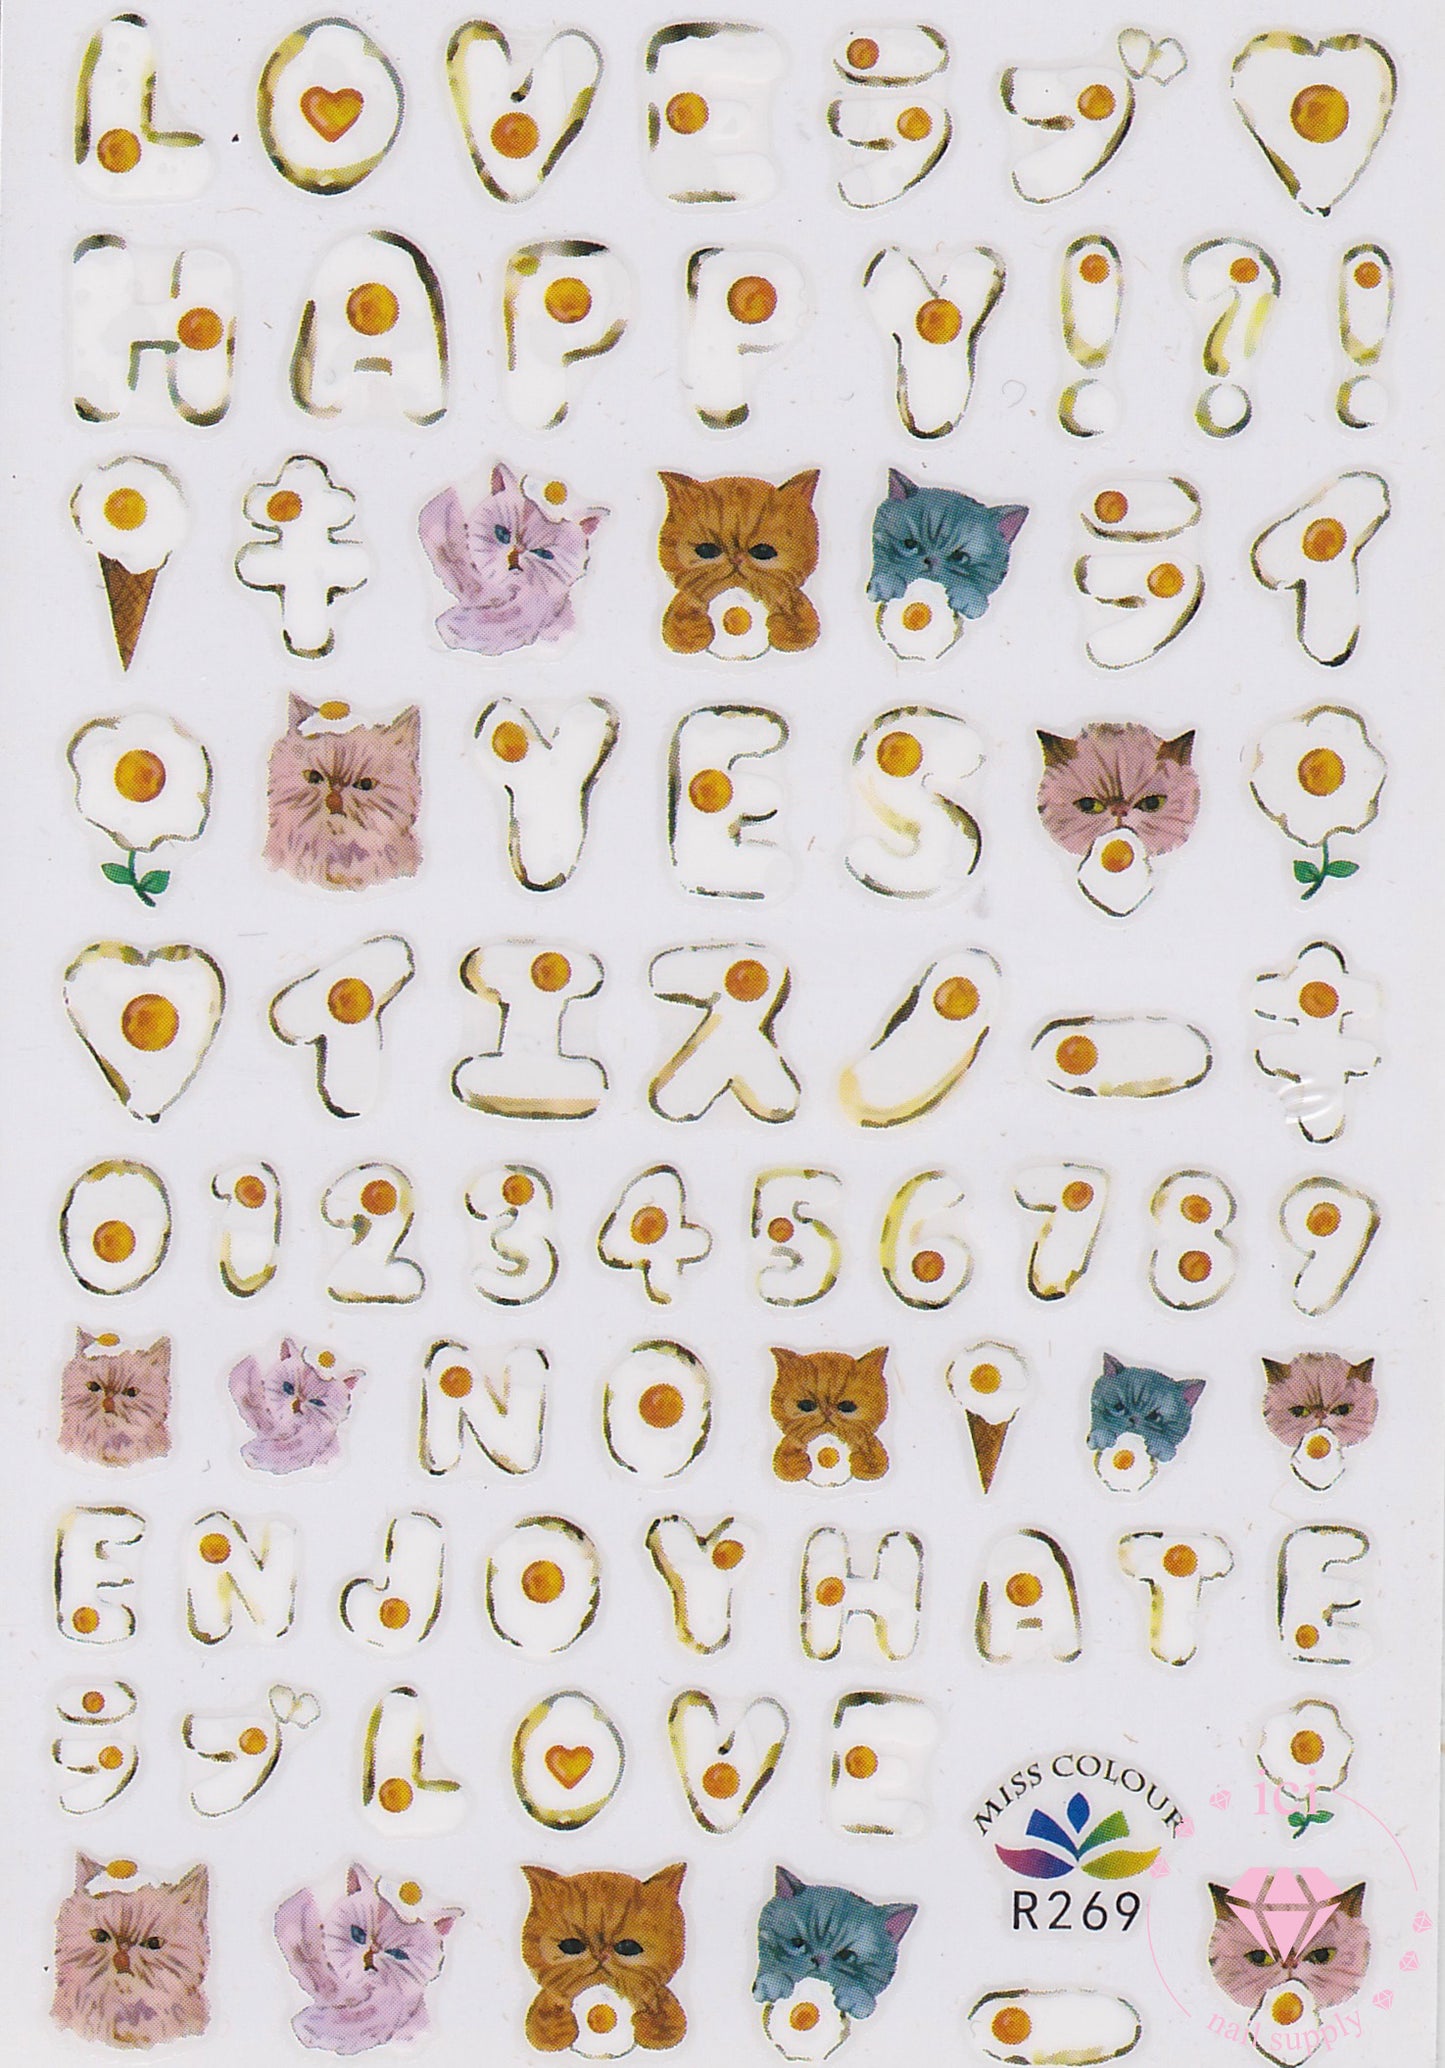 LOVE ラブ
HAPPY!?!
キ ライ
YES
イエスノーキ
0123456789
NO
ENJOY HATE
ラブ LOVE
MISS COLOUR
R269
ー
ici
nail supply